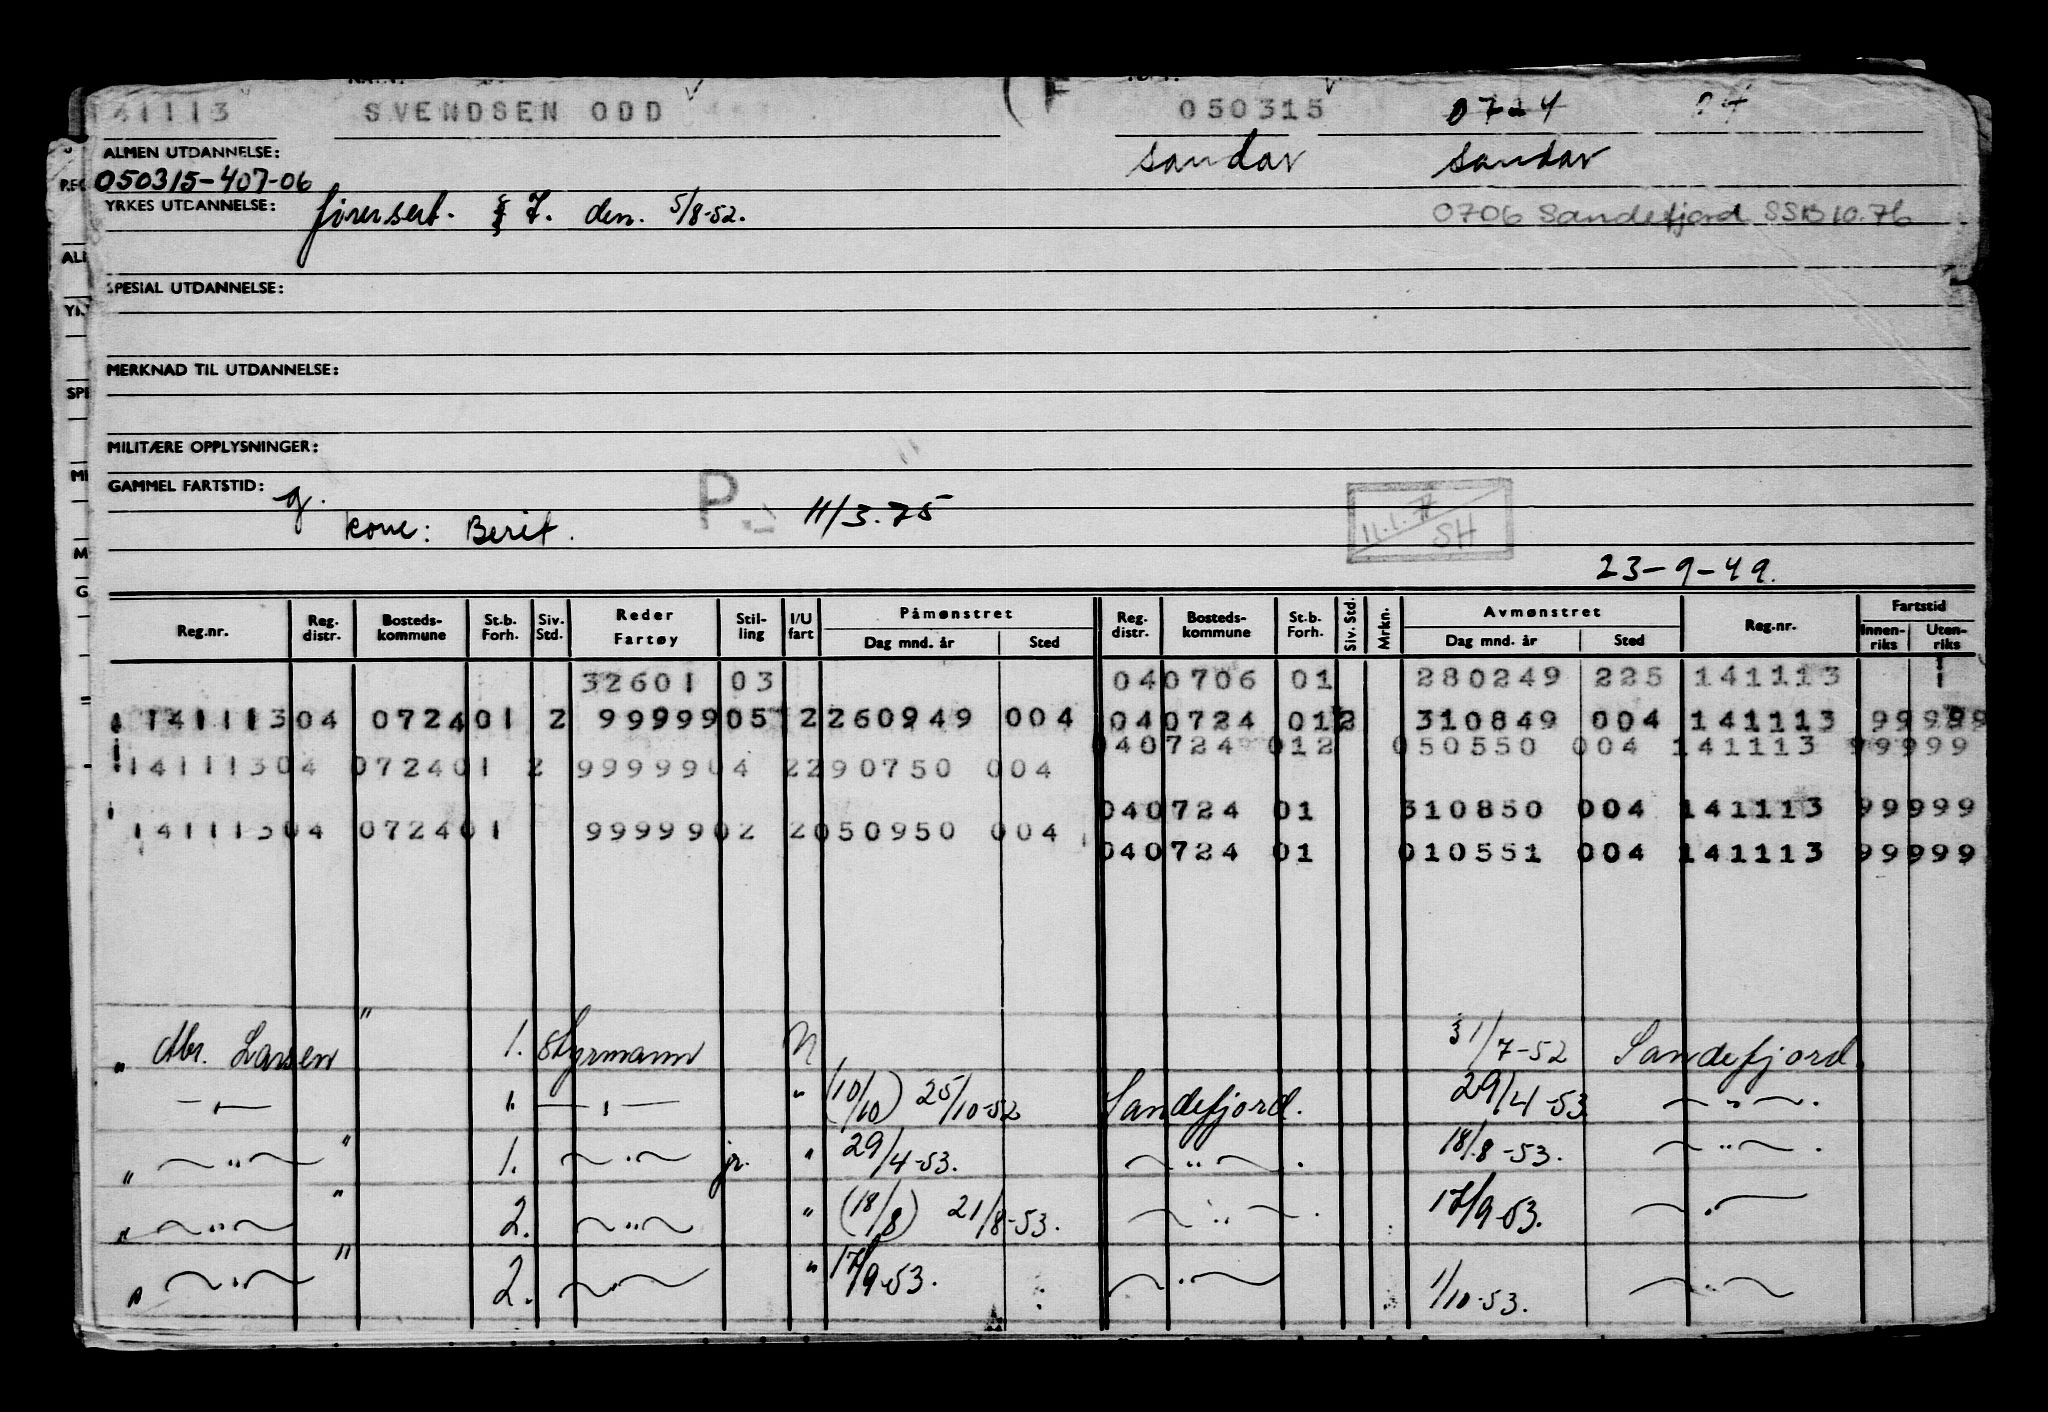 141113 SVENDSEN ODD 050315 0724
ALMEN UTDANNELSE: Sandar Sandar
050315-407-06
YRKES UTDANNELSE: førersert. § 7. den. 5/8-52. 0706 Sandefjord SSB 10.76
SPESIAL UTDANNELSE:
MERKNAD TIL UTDANNELSE:
MILITÆRE OPPLYSNINGER:
GAMMEL FARTSTID: g. P 11/3.75
kone: Berit. SH
23-9-49.
Reg.nr. Reg. distr. Bosteds-kommune St.b. Forh. Siv. Std. Reder Fartøy Stil-ling I/U fart Påmønstret Dag mnd. år Sted Reg. distr. Bosteds-kommune St.b. Forh. Siv. Std. Mrkn. Avmønstret Dag mnd. år Sted Reg.nr. Fartstid Innen-riks Uten-riks
32601 03 040706 01 280249 225 141113
141113 04 072401 2 99999 05 2 260949 004 040724 012 310849 004 141113 99999
040724 012 050550 004 141113 99999
141113 04 072401 2 99999 04 2 290750 004
040724 01 310850 004 141113 99999
141113 04 072401 99999 02 2 050950 004
040724 01 010551 004 141113 99999
" Abr. Larsen " 1. Styrmann N 31/7-52 Sandefjord.
— " — 1. — " — " (10/10) 25/10-52 Sandefjord. 29/4-53 — " —.
" — " — " 1. — " — jr. " 29/4-53. — " —. 18/8-53. — " —.
" — " — " 2. — " — " (18/8) 21/8-53. — " —. 17/9-53. — " —
" — " — " 2. — " — " 17/9-53. — " — 1/10-53. — " —